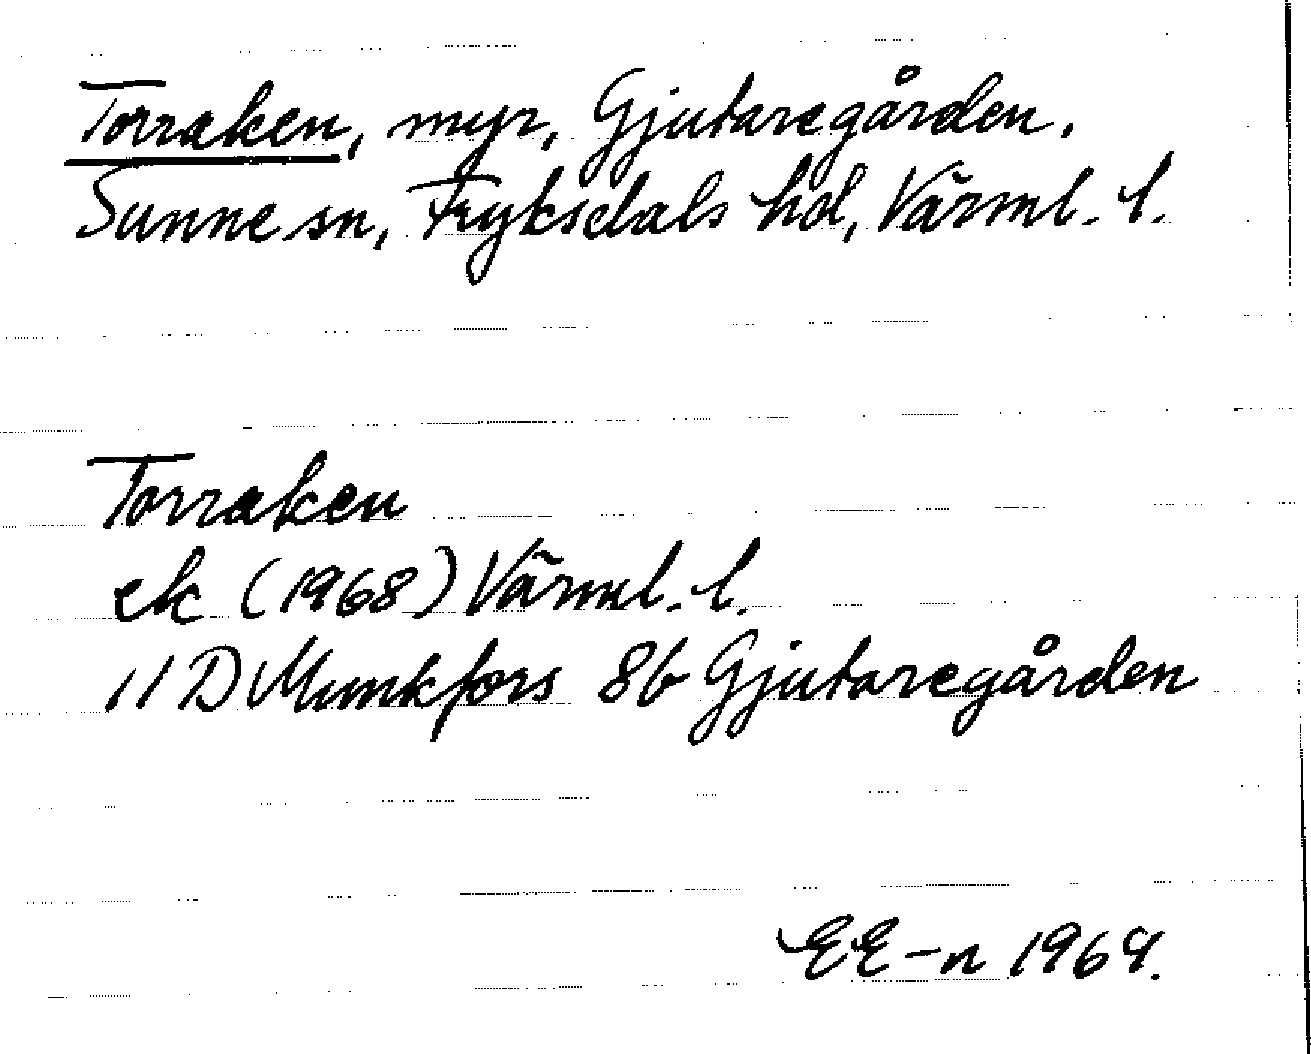 Torraken, myr, Gjutaregården,
Sunne sn, Fryksdals hd, Värml. l.
Torraken
ek (1968) Värml. l.
11 D Munkfors 8b Gjutaregården
EE-n 1969.